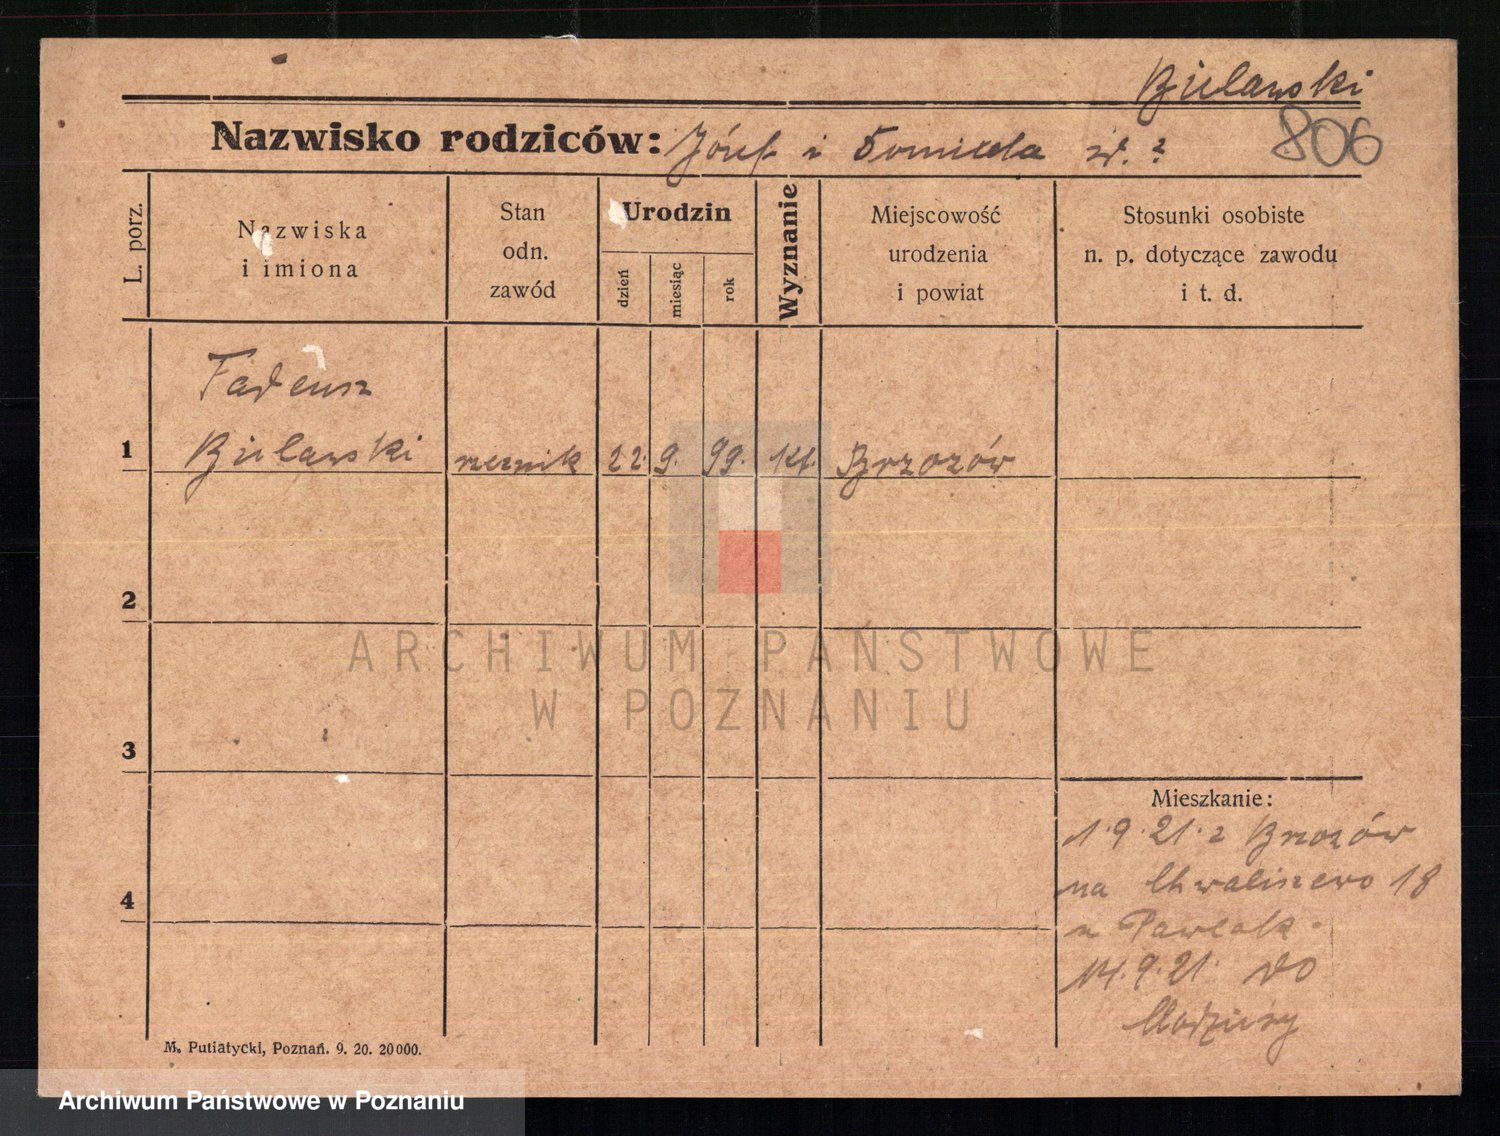 Bielawski
806
Nazwisko rodziców: Józef i Domicela zd. ?
L. porz.
Nazwiska
i imiona
Stan
odn.
zawód
Urodzin
dzień
miesiąc
rok
Wyznanie
Miejscowość
urodzenia
i powiat
Stosunki osobiste
n. p. dotyczące zawodu
i t. d.
Tadeusz
1 Bielawski rzeźnik 22. 9. 99. kt. Brzozów
2
ARCHIWUM PAŃSTWOWE
W POZNANIU
3
Mieszkanie:
1.9.21 z Brzozów
4
na Chwaliszewo 18
u Pawlak.
14.9.21. do
M. Putiatycki, Poznań. 9. 20. 20000.
Archiwum Państwowe w Poznaniu